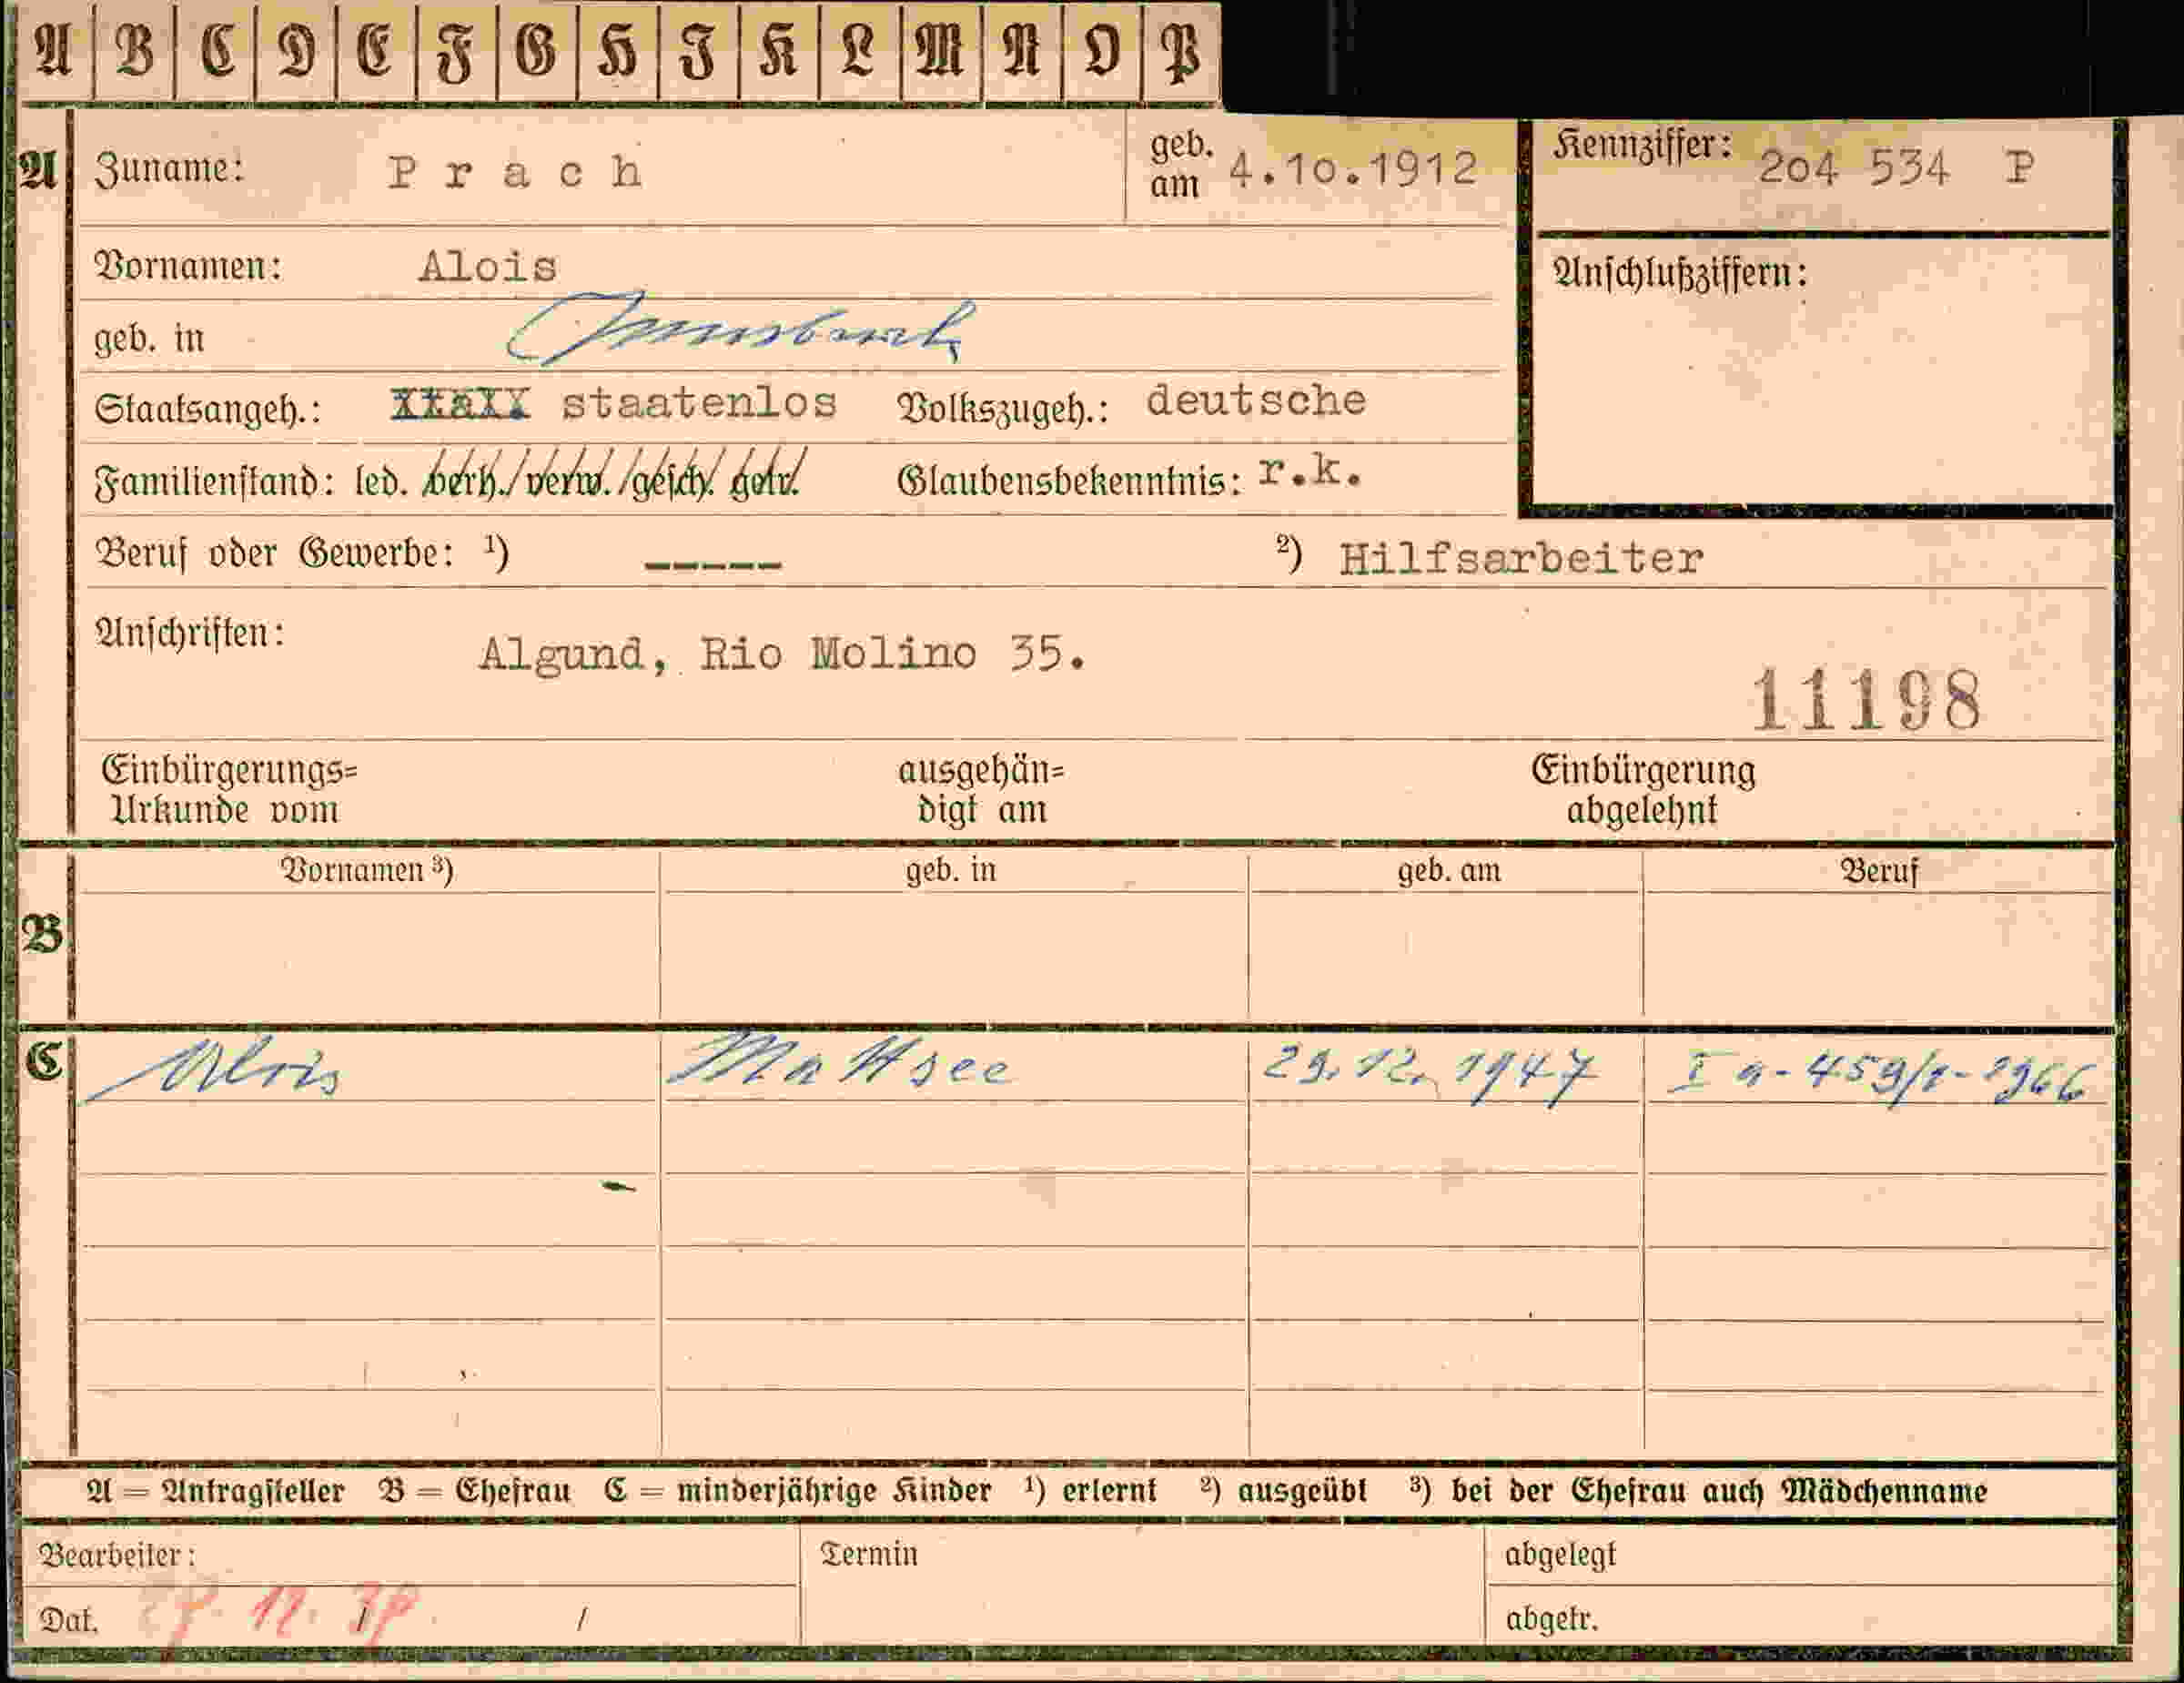 A B C D E F G H J K L M N O P
A Zuname: Prach geb. am 4.10.1912 Kennziffer: 204 534 P
Vornamen: Alois Anschlußziffern:
geb. in Innsbruck
Staatsangeh.: staatenlos Volkszugeh.: deutsche
Familienstand: led. verh./verw./gesch. getr. Glaubensbekenntnis: r.k.
Beruf oder Gewerbe: ¹) ----- ²) Hilfsarbeiter
Anschriften: Algund, Rio Molino 35.
11198
Einbürgerungs= ausgehän= Einbürgerung
Urkunde vom digt am abgelehnt
Vornamen ³) geb. in geb. am Beruf
B
C Alois Mattsee 29.12.1947 I a-459/1-1966
A = Antragsteller B = Ehefrau C = minderjährige Kinder ¹) erlernt ²) ausgeübt ³) bei der Ehefrau auch Mädchenname
Bearbeiter: Termin abgelegt
Dat. 12. / / abgetr.